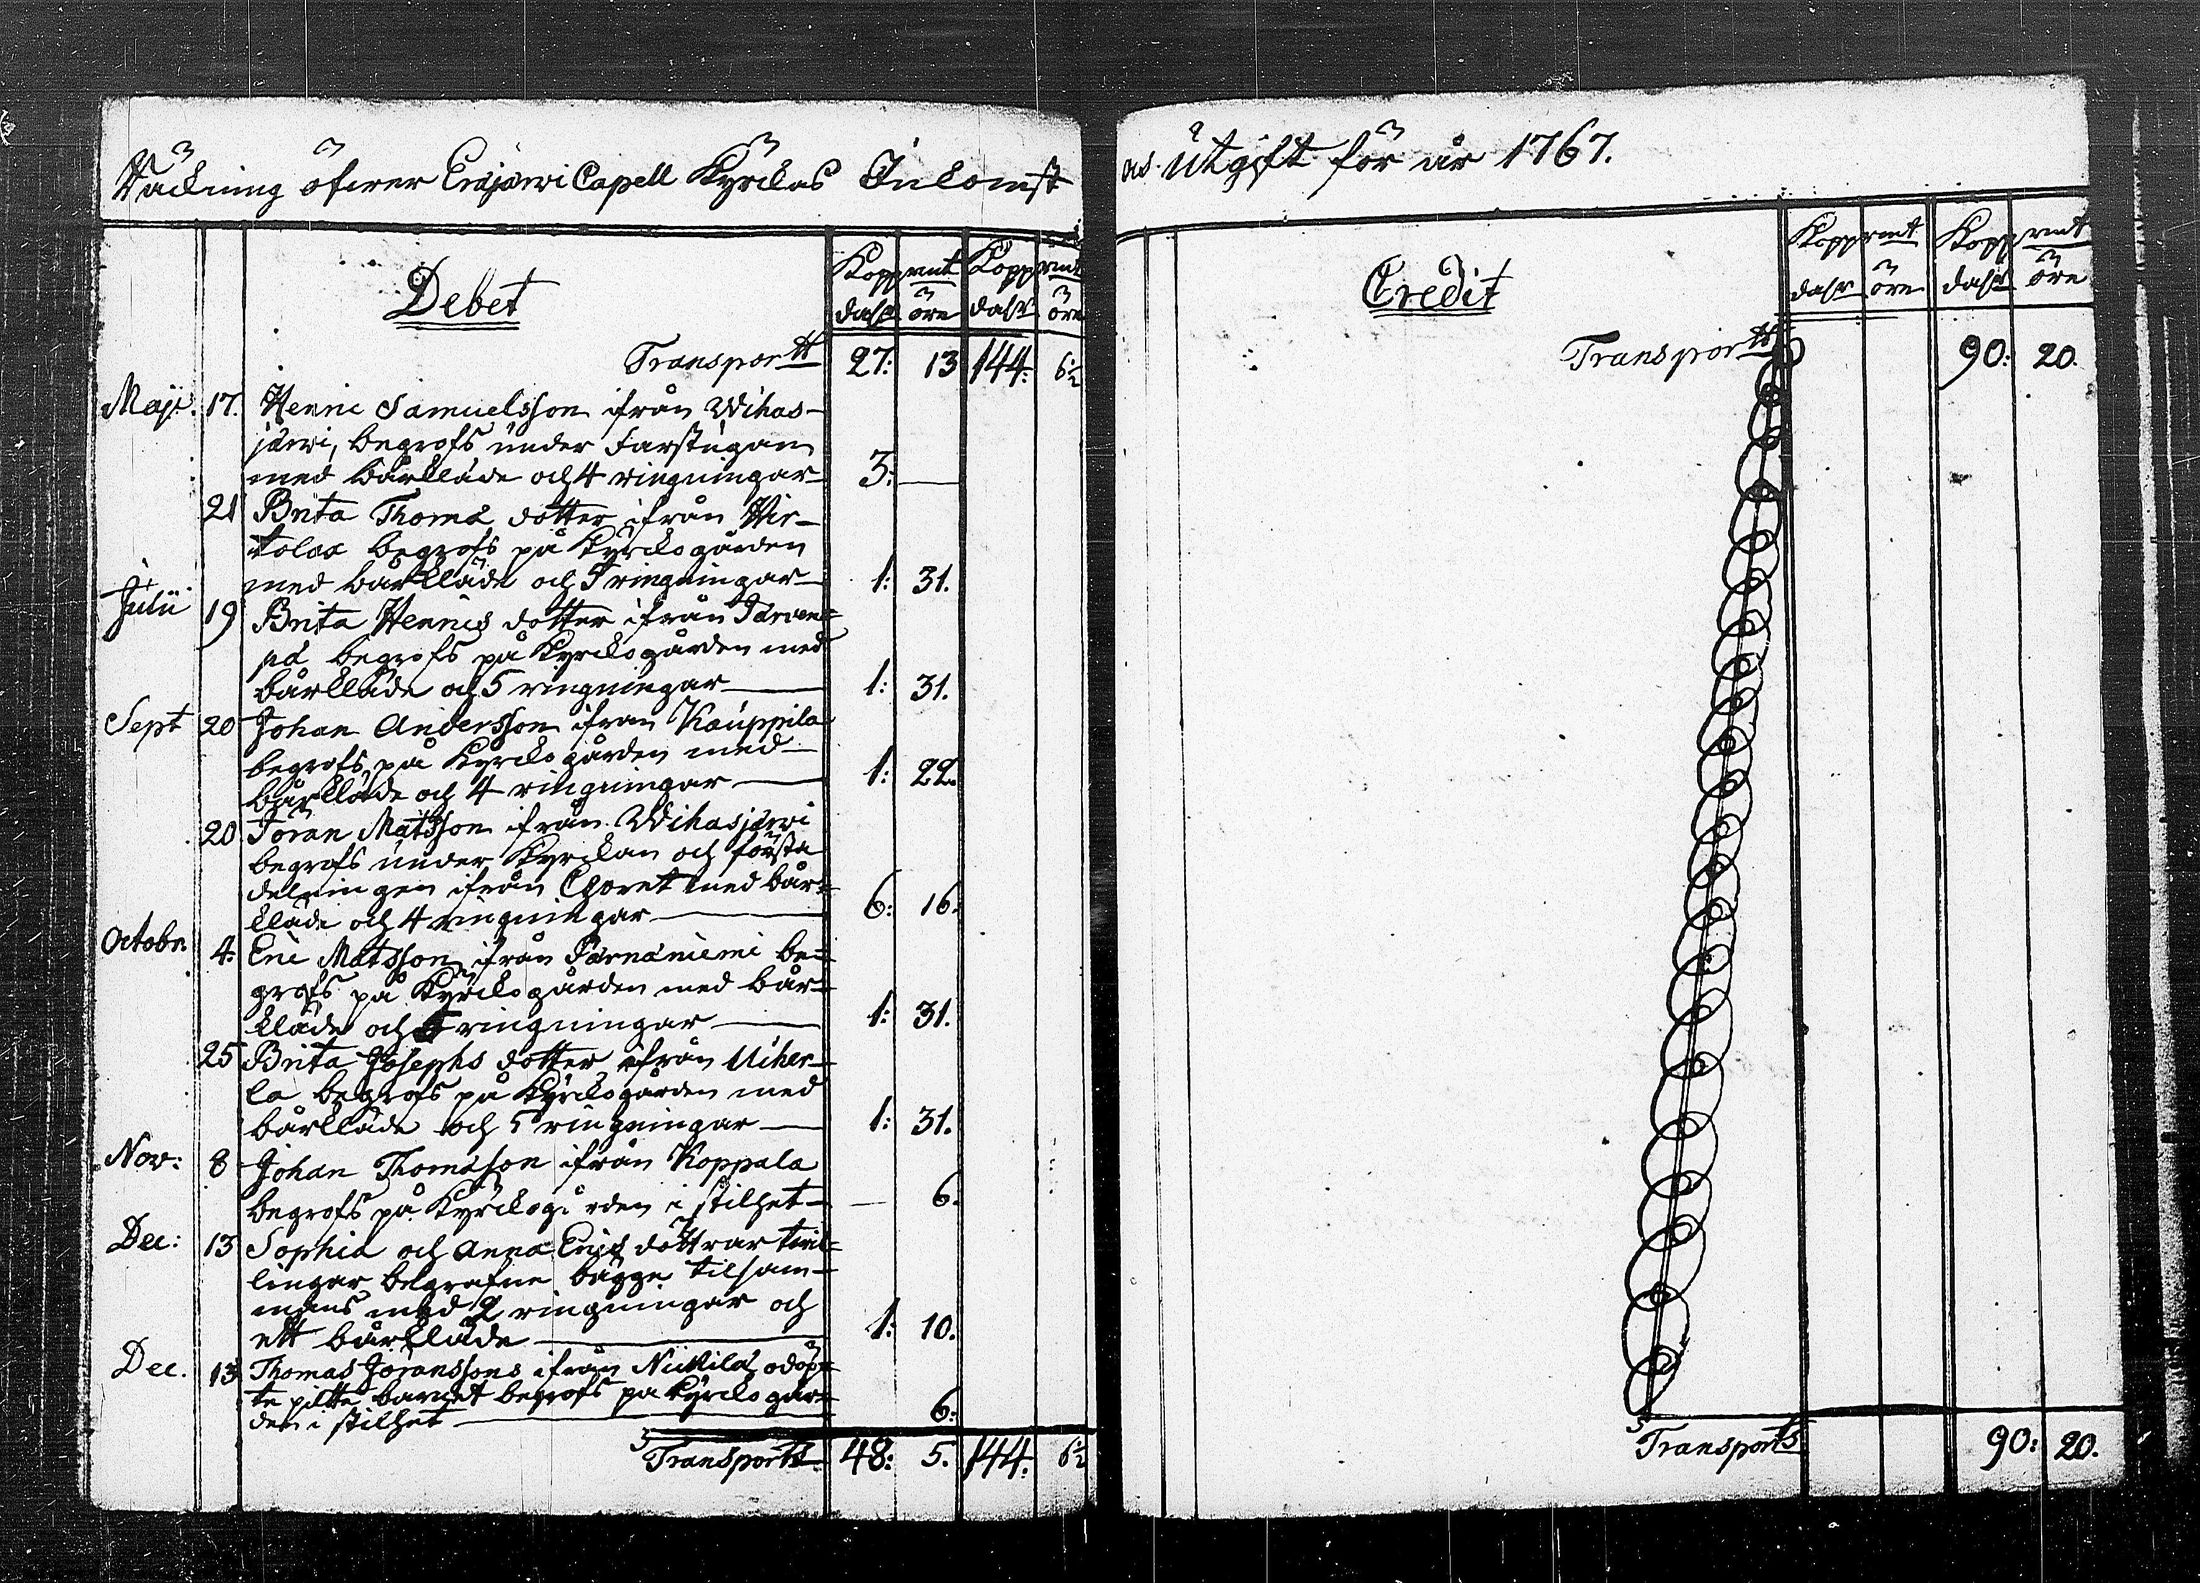 Räckning öfwer Eräjärwi Capell Kyrckas Inkomst
och Utgift för år 1767.
Debet
Koppmt Koppmt
dalr öre dalr öre
Transportt 27: 13 144: 6½
Maji. 17. Henric Samuelsson ifrån Wihas-
järwi, begrofs under Farstugan
med bårkläde och 4 ringningar 3: —
21 Brita Thomä dotter ifrån Wir-
tolax begrofs på Kyrckogården
med bårkläde och 5 ringningar 1: 31.
Julii 19 Brita Henrics dotter ifrån Järven=
pä begrofs på Kyrckogården med
bårkläde och 5 ringningar — 1: 31.
Sept 20 Johan Andersson ifrån Kauppila
begrofs på Kyrckogården med
bårkläde och 4 ringningar — 1: 22.
20 Jöran Matsson ifrån Wihasjärwi
begrofs under Kyrckan och första
delningen ifrån Choret med bår=
kläde och 4 ringningar — 6: 16.
Octobr. 4. Eric Matsson ifrån Pärnäniemi be=
grofs på Kyrckogården med bår=
kläde och 5 ringningar — 1: 31.
25 Brita Josephs dotter ifrån Uiher-
la begrofs på Kyrckogården med
bårkläde och 5 ringningar — 1: 31.
Nov: 8 Johan Thomasson ifrån Koppala
begrofs på Kyrckogården i stilhet — 6.
Dec: 13 Sophia och Anna Erics döttrar twil=
lingar begrafne bägge tilsam-
mans med 2 ringningar och
ett bårkläde — 1: 10.
Dec. 13 Thomas Joranssons ifrån Nickilä odöp=
te piltte barnet begrofs på Kyrckogår=
den i stilhet — 6:
Transportt. 48: 5. 144: 6½
Credit
Koppmt Koppmt
dalr öre dalr öre
Transportt 90: 20.
Transportt 90: 20.